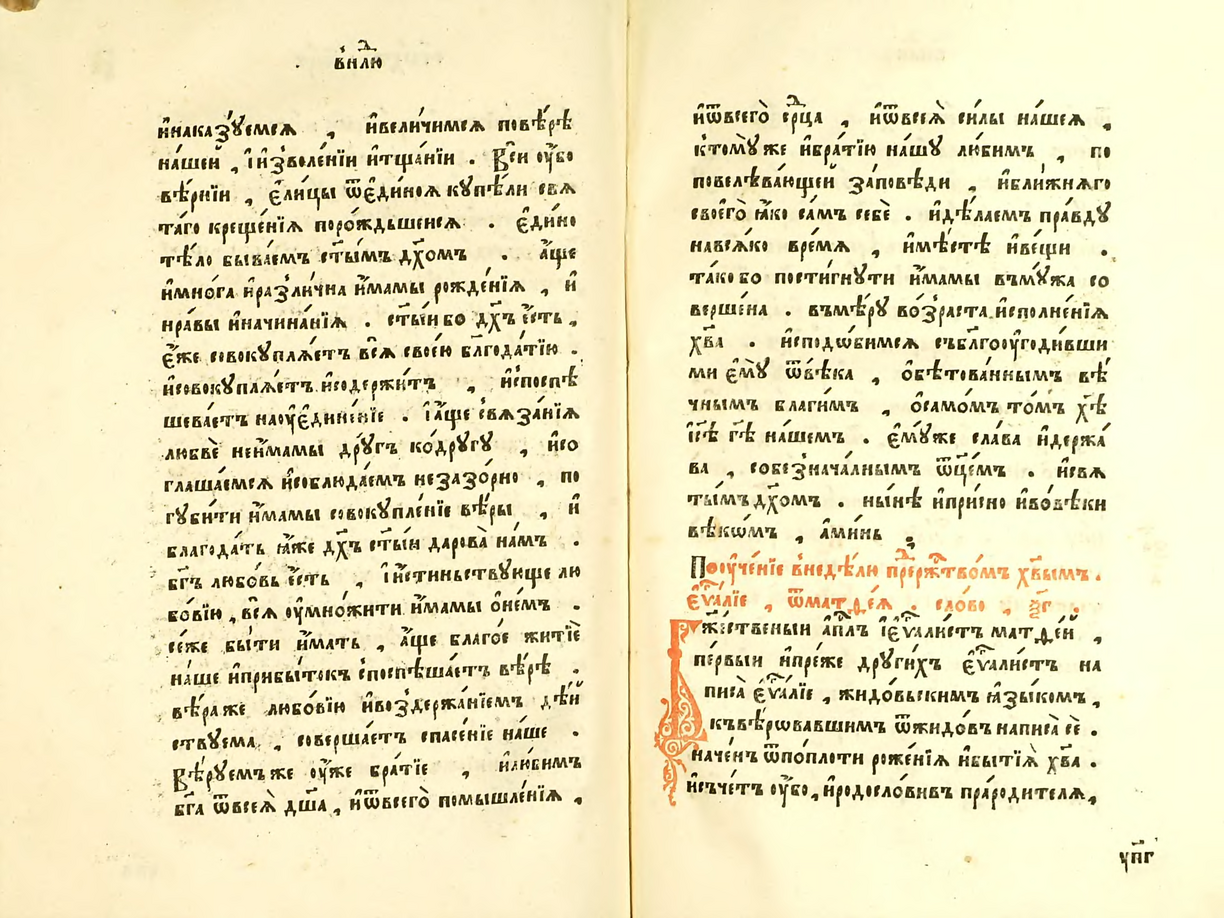 в҃ нⷣелю
и҆наказꙋ́емсѧ , и҆вели́чимсѧ повѣ́рѣ
на́шей , і҆и҆зволе́нїи и҆тща́нїи . Всѝ ᲂу҆́бо
вѣ́рнїи , є҆ли́цы ѿє҆ди́ноѧ купѣ́ли свѧ
та́го креще́нїѧ поро́ждьшенсѧ . є҆ди́но
тѣ́ло быва́емъ ст҃ы́мъ дх҃омъ . а҆́ще
и҆мно́га и҆разли́чна и҆́мамы рожде́нїѧ , и҆
нра́вы и҆начина́нїѧ . ст҃ы́и бо дх҃ъ є҆́сть ,
є҆́же совокупля́етъ всѧ̀ свое́ю блг҃ода́тїю .
и҆совокупля́етъ и҆содержи́тъ , и҆споспѣ
шева́етъ наᲂу҆є҆дине́нїе . і҆а҆́ще свѧза́нїѧ
любвѐ неи҆́мамы дрꙋ́гъ ко́другꙋ , и҆со
глаша́емсѧ и҆соблюда́емъ незазо́рно , по
гꙋби́ти и҆́мамы совокупле́нїе вѣ́ры , и҆
благода́ть ꙗ҆́же дх҃ъ ст҃ы́и дарова̀ на́мъ .
бг҃ъ любо́вь є҆́сть , і҆и҆́стиньствꙋюще лю
бо́вїю , всѧ̀ ᲂу҆мно́жити и҆́мамы о҆не́мъ .
се́же бы́ти и҆́мать , а҆́ще благо́е житїѐ
на́ше и҆прибы́токъ споспѣша́етъ вѣ́рѣ .
вѣ́ра же любо́вїю и҆воздержа́нїемъ дѣ́й
ствꙋема , соверша́етъ спасе́нїе на́ше .
Вѣ́рꙋемъ же ᲂу҆́же бра́тїе , и҆лю́бимъ
бг҃а ѿвсеѧ̀ дш҃а , и҆ѿвсего̀ помышле́нїѧ ,
и҆ѿвсего̀ срⷣца , и҆ѿвсеѧ̀ си́лы на́шеѧ ,
ктомꙋ́ же и҆бра́тїю на́шꙋ лю́бимъ , по
повелѣва́ющей за́повѣди , и҆бли́жнѧго
своего̀ ꙗ҆́ко са́мъ себѐ . и҆дѣ́лаемъ пра́вдꙋ
навсѧ́ко вре́мѧ , и҆мѣ́стѣ и҆ве́щи .
та́ко бо пости́гнꙋти и҆́мамы въмꙋ́жа со
верше́на . въмѣ́рꙋ во́зраста и҆сполне́нїѧ
хв҃а . и҆сподо́бимсѧ съблгоᲂу҆годи́вши
ми є҆мꙋ̀ ѿвѣ́ка , о҆бѣтова́ннымъ вѣ́
чнымъ благи́мъ , о҆само́мъ то́мъ хⷭ҇ѣ
і҆с҃ѣ гдⷭ҇ѣ на́шемъ . є҆мꙋ́же сла́ва и҆держа́
ва , собезнача́лнымъ ѿц҃е́мъ . и҆свѧ
ты́мъ дх҃омъ . ны́нѣ и҆при́сно и҆вовѣ́ки
вѣкѡ́мъ , а҆ми́нь .
Поᲂу҆че́нїе внедѣ́лю преⷣрⷭ҇жтво́мъ хв҃ымъ .
є҆ѵⷢ҇алїе , ѿмат.ѳе́ѧ . сло́во ,
жⷭ҇ственыи а҆п҃лъ і҆є҆ѵⷢ҇али́стъ матѳе́й ,
пе́рвыи и҆пре́же дрꙋги́хъ є҆ѵⷢ҇али́стъ на
писа̀ є҆ѵⷢ҇алїе , жидо́вьскимъ ꙗ҆зы́комъ ,
къвѣ́ровавшимъ ѿжидо́въ написа̀ сѐ .
наче́нъ ѿпопло́ти роже́нїѧ и҆бытїѧ̀ хв҃а .
и҆съче́тъ ᲂу҆́бо , и҆родосло́вивъ пра́родителѧ ,
ѱ҃пг